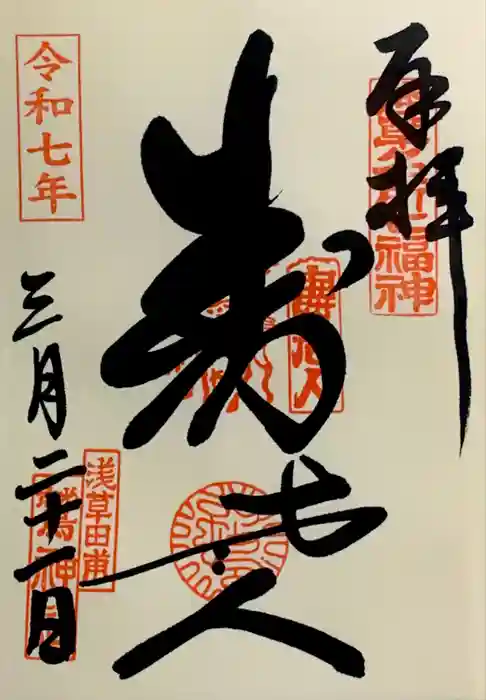 奉拝
浅草名所七福神
寿老人
令和七年
三月二十一日
浅草田甫
鷲神社